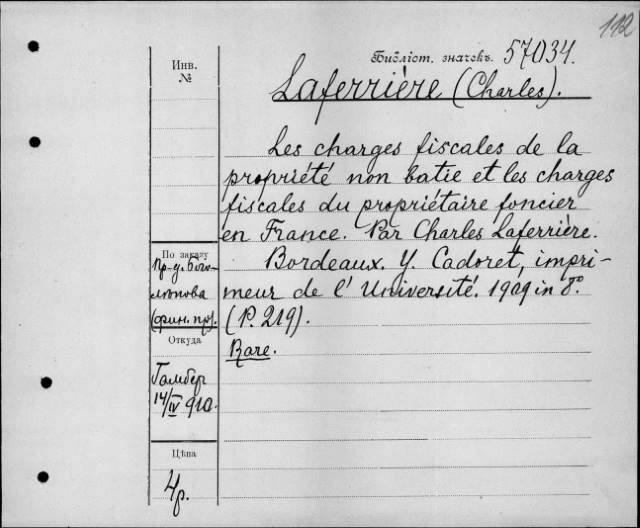 112
Библіот. значекъ. 57034.
Инв.
№
Laferrière (Charles).
Les charges fiscales de la
propriété non batie et les charges
fiscales du propriétaire foncier
en France. Par Charles Laferrière.
Bordeaux. Y. Cadoret, impri-
meur de l'Université. 1909 in 8°.
(P. 219).
Rare.
По заказу
Пр-у. Бого-
лѣпова
(фин. пр).
Откуда
Гамбер
14/IV 910.
Цѣна
4р.